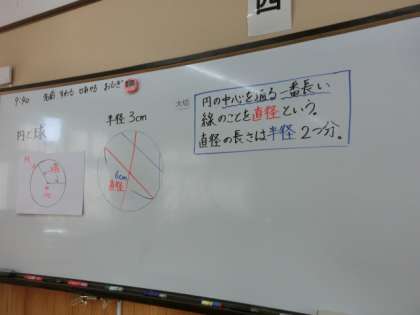 四
9:40
大切
円の中心を通る一番長い
線のことを直径という。
直径の長さは半径2つ分。
円と球
半径3cm
6cm
直径